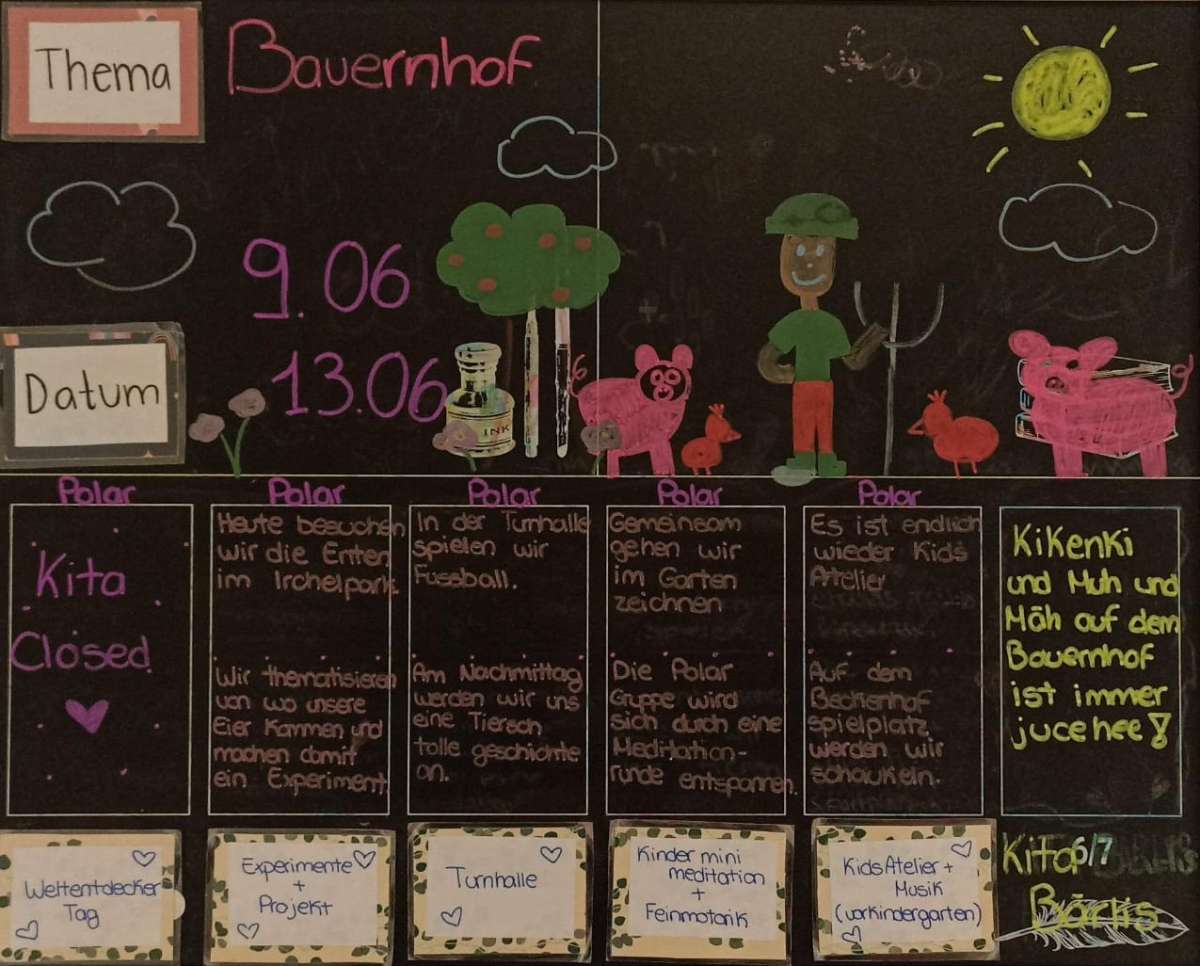 Thema
Bauernhof
9.06
13.06
Datum
INK
Polar
Kita
Closed
Polar
Heute besuchen
wir die Enten
im Irchelpark.
Wir thematisieren
von wo unsere
Eier Kammen und
machen damit
ein Experiment
Polar
In der Turnhalle
spielen wir
Fussball.
Am Nachmittag
werden wir uns
eine Tiersch
tolle geschichte
an.
Polar
Gemeinsam
gehen wir
im Garten
zeichnen
Die Polar
Gruppe wird
sich durch eine
Meditation-
runde entspannen.
Polar
Es ist endlich
wieder Kids
Atelier
Auf dem
Beckenhof
spielplatz
werden wir
schaukeln.
KiKenKi
und Muh und
Mäh auf dem
Bauernhof
ist immer
jucehee!
Weltentdecker
Tag
Experimente
+
Projekt
Turnhalle
Kinder mini
meditation
+
Feinmotorik
Kids Atelier +
Musik
(vorkindergarten)
Kita 6/7
Börks